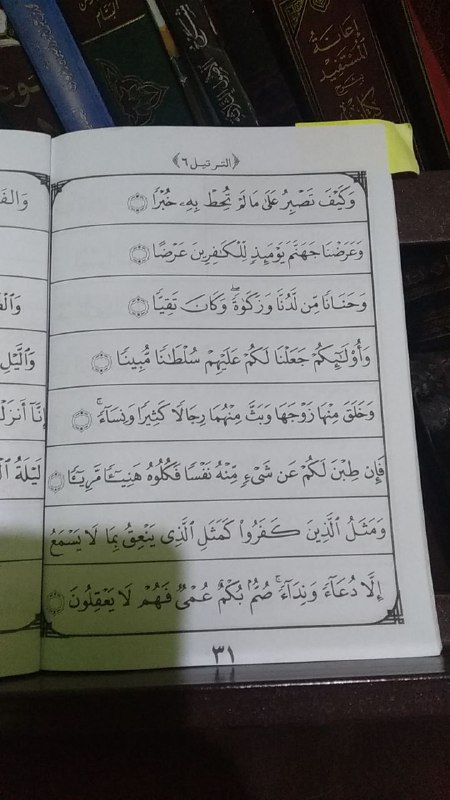 إعانة
المستفيد
﴿الترتيل ٦﴾
وَكَيْفَ تَصْبِرُ عَلَىٰ مَا لَمْ تُحِطْ بِهِۦ خُبْرًا
وَعَرَضْنَا جَهَنَّمَ يَوْمَئِذٍ لِّلْكَٰفِرِينَ عَرْضًا
وَحَنَانًا مِّن لَّدُنَّا وَزَكَوٰةً ۖ وَكَانَ تَقِيًّا
وَأُو۟لَٰٓئِكُمْ جَعَلْنَا لَكُمْ عَلَيْهِمْ سُلْطَٰنًا مُّبِينًا
وَخَلَقَ مِنْهَا زَوْجَهَا وَبَثَّ مِنْهُمَا رِجَالًا كَثِيرًا وَنِسَآءً ۚ
فَإِن طِبْنَ لَكُمْ عَن شَىْءٍ مِّنْهُ نَفْسًا فَكُلُوهُ هَنِيٓـًٔا مَّرِيٓـًٔا
وَمَثَلُ ٱلَّذِينَ كَفَرُوا۟ كَمَثَلِ ٱلَّذِى يَنْعِقُ بِمَا لَا يَسْمَعُ
إِلَّا دُعَآءً وَنِدَآءً ۚ صُمٌّۢ بُكْمٌ عُمْىٌ فَهُمْ لَا يَعْقِلُونَ
٣١